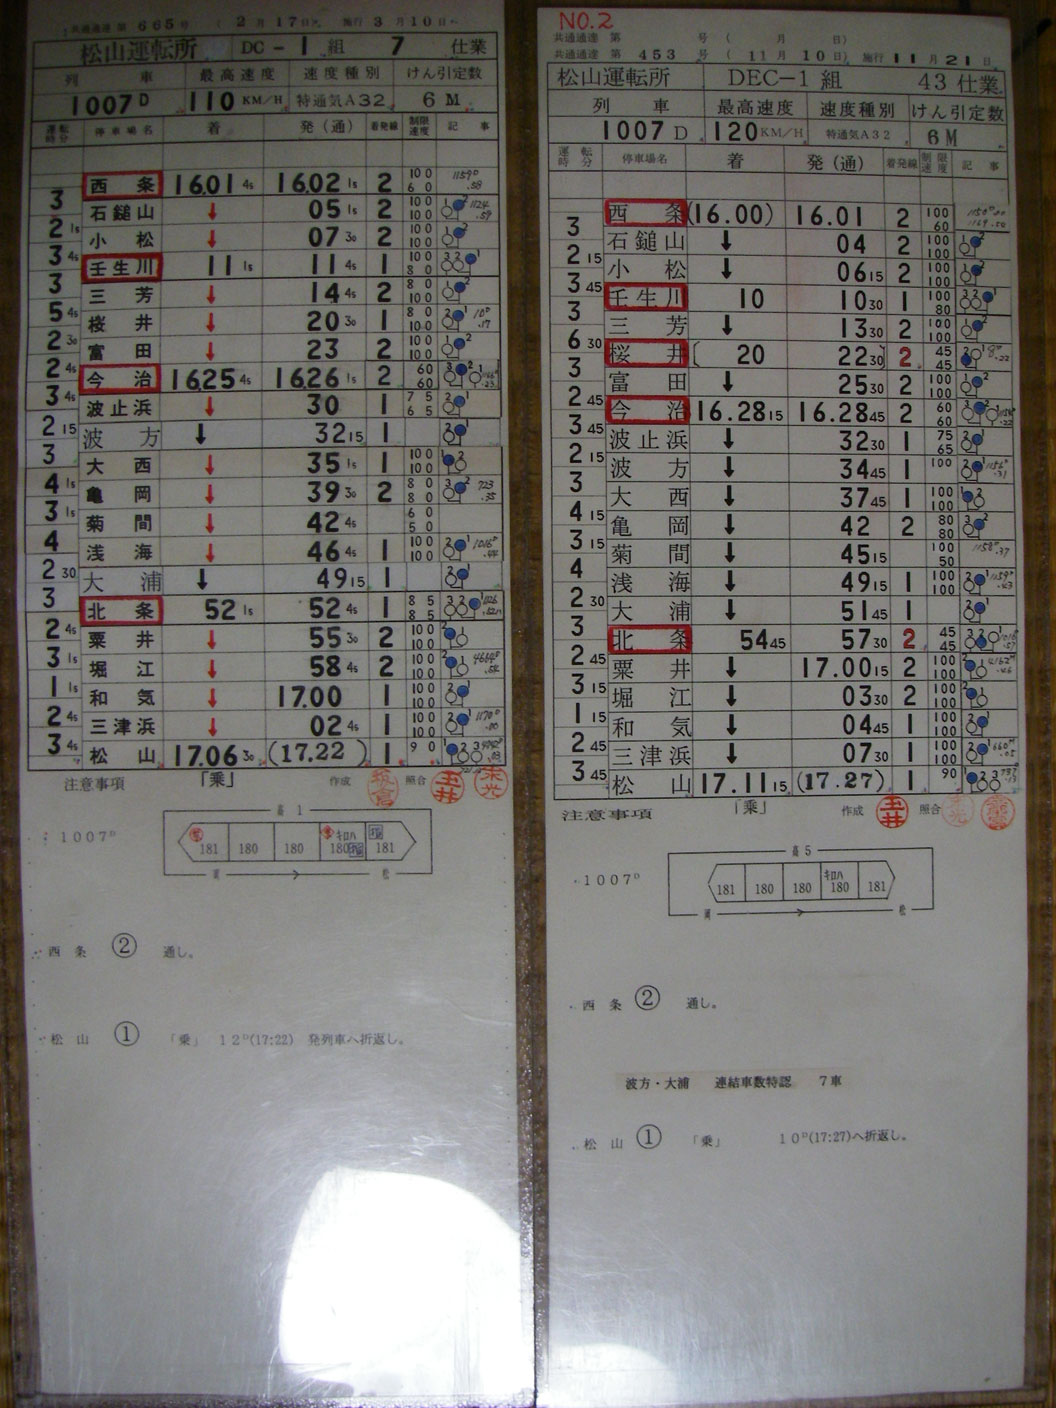 共通通達 第 665号 ( 2月17日) 施行 3月10日
松山運転所 DC-1組 7 仕業
列車 最高速度 速度種別 けん引定数
1007D 110KM/H 特通気A32 6M
運転時分 停車場名 着 発(通) 着発線 制限速度 記事
西条 16.01 4s 16.02 1s 2 100 60
3
石鎚山 ↓ 05 1s 2 100 100
2 1s
小松 ↓ 07 30 2 100 100
3 4s
壬生川 11 1s 11 4s 1 100 80
3
三芳 ↓ 14 4s 2 80 100
5 4s
桜井 ↓ 20 30 1 80 100
2 30
富田 ↓ 23 2 100 100
2 4s
今治 16.25 4s 16.26 1s 2 60 60
3 4s
波止浜 ↓ 30 1 75 65
2 15
波方 ↓ 32 15 1
3
大西 ↓ 35 1s 1 100 100
4 1s
亀岡 ↓ 39 30 2 80 80
3 1s
菊間 ↓ 42 4s 60 50
4
浅海 ↓ 46 4s 1 100 100
2 30
大浦 ↓ 49 15 1
3
北条 52 1s 52 4s 1 85 85
2 4s
粟井 ↓ 55 30 2 100 100
3 1s
堀江 ↓ 58 4s 2 100 100
1 1s
和気 ↓ 17.00 1 100 100
2 4s
三津浜 ↓ 02 4s 1 100 100
3 4s
松山 17.06 30 (17.22) 1 90
注意事項 「乗」 作成 照合 玉井
1007D
高1
181 180 180 180 181
松
西条 ② 通し。
松山 ① 「乗」 12D(17:22) 発列車へ折返し。
NO.2
共通通達 第 号 ( 月 日)
共通通達 第 453号 (11月10日) 施行 11月21日
松山運転所 DEC-1組 43仕業
列車 最高速度 速度種別 けん引定数
1007D 120KM/H 特通気A32 6M
運転時分 停車場名 着 発(通) 着発線 制限速度 記事
西条 (16.00) 16.01 2 100 60
3
石鎚山 ↓ 04 2 100 100
2 15
小松 ↓ 06 15 2 100 100
3 45
壬生川 10 10 30 1 100 80
3
三芳 ↓ 13 30 2 100 100
6 30
桜井 〔 20 22 30〕 2 45 45
3
富田 ↓ 25 30 2 100 100
2 45
今治 16.28 15 16.28 45 2 60 60
3 45
波止浜 ↓ 32 30 1 75 65
2 15
波方 ↓ 34 45 1 100
3
大西 ↓ 37 45 1 100 100
4 15
亀岡 ↓ 42 2 80 80
3 15
菊間 ↓ 45 15 100 50
4
浅海 ↓ 49 15 1 100 100
2 30
大浦 ↓ 51 45 1
3
北条 54 45 57 30 2 45 45
2 45
粟井 ↓ 17.00 15 2 100 100
3 15
堀江 ↓ 03 30 2 100 100
1 15
和気 ↓ 04 45 1 100 100
2 45
三津浜 ↓ 07 30 1 100 100
3 45
松山 17.11 15 (17.27) 1 90
注意事項 「乗」 作成 玉井 照合
1007D
高5
181 180 180 180 181
松
西条 ② 通し。
波方・大浦 連結車数特認 7車
松山 ① 「乗」 10D(17:27)へ折返し。